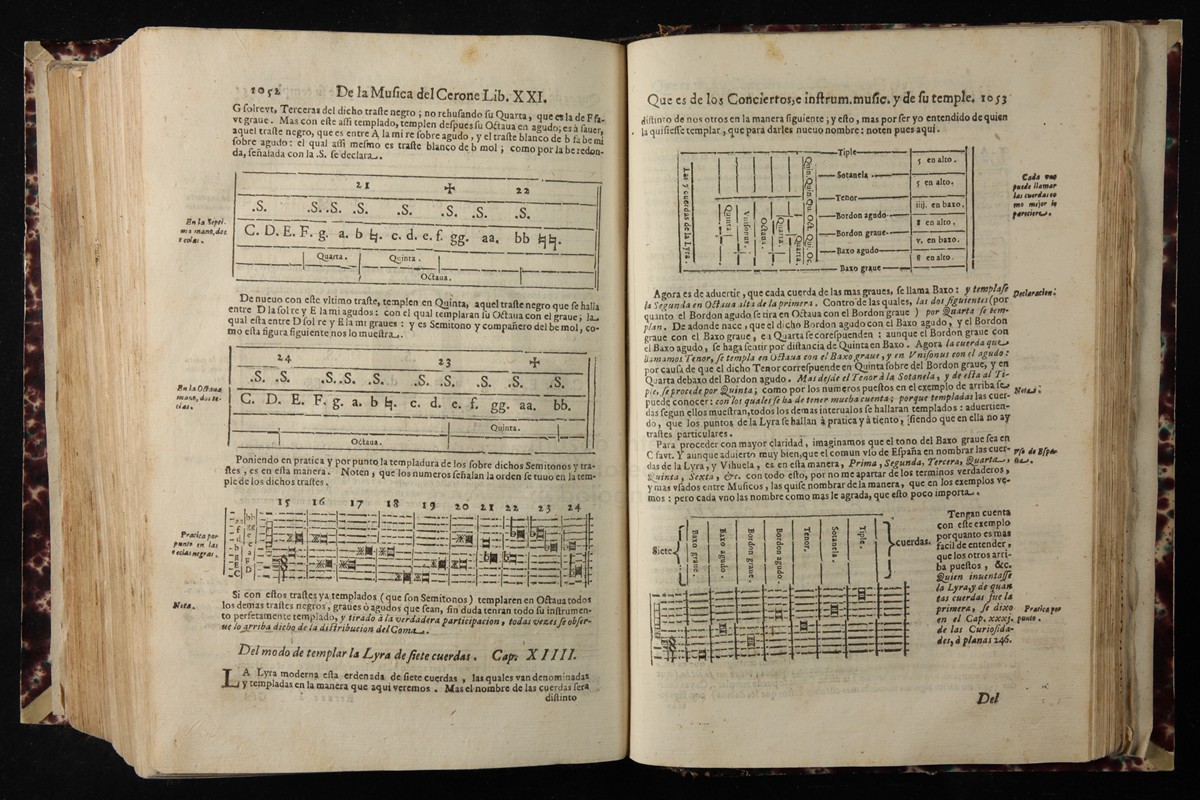 1052 De la Musica del Cerone Lib. XXI.
G solreut, Terceras del dicho traste negro; no rehusando su Quarta, que es la de F fa-
ut graue. Mas con este assi templado, templen despues su Octaua en agudo; es à sauer,
aquel traste negro, que es entre A la mi re sobre agudo, y el traste blanco de b fa be mi
sobre agudo: el qual assi mesmo es traste blanco de b mol; como por la be redon-
da, señalada con la .S. se declara.
En la Sepel.
ma mano, dos
teclas.
21 + 22
.S. .S. .S. .S. .S. .S. .S. .S.
C. D. E. F. g. a. b ♮. c. d. e. f. gg. aa. bb ♮♮.
Quarta. Quinta.
Octaua.
De nueuo con este vltimo traste, templen en Quinta, aquel traste negro que se halla
entre D la sol re y E la mi agudos: con el qual templaran su Octaua con el graue; la
qual esta entre D sol re y E la mi graues: y es Semitono y compañero del be mol, co-
mo esta figura siguiente nos lo muestra.
En la Octaua
mano, dos te-
clas.
24 23 +
.S. .S. .S. .S. .S. .S. .S. .S. .S. .S.
C. D. E. F. g. a. b ♮. c. d. e. f. gg. aa. bb.
Quinta.
Octaua.
Poniendo en pratica y por punto la templadura de los sobre dichos Semitonos y tra-
stes, es en esta manera. Noten, que los numeros señalan la orden se tuuo en la tem-
ple de los dichos trastes.
Pratica por
punto en las
teclas negras.
15 16 17 18 19 20 21 22 23 24
Si con estos trastes ya templados (que son Semitonos) templaren en Octaua todos
los demas trastes negros, graues ò agudos que sean, sin duda tenran todo su instrumen-
to perfetamente templado, y tirado à la verdadera participacion, todas vezes se obser-
ue lo arriba dicho de la distribucion del Coma.
Nota.
Del modo de templar la Lyra de siete cuerdas. Cap. XIIII.
LA Lyra moderna esta ordenada de siete cuerdas, las quales van denominadas
y templadas en la manera que aqui veremos. Mas el nombre de las cuerdas sera
distinto
Que es de los Conciertos, e instrum. music. y de su temple. 1053
distinto de nos otros en la manera siguiente; y esto, mas por ser yo entendido de quien
la quisiesse templar, que para darles nueuo nombre: noten pues aqui.
Las 7 cuerdas de la Lyra.
Quinta.
Vnisonus.
Octaua.
Quarta.
Quarta.
Quin. Quin. Qu. Oct. Qui. Oc.
Tiple
5 en alto.
Sotanela
5 en alto.
Tenor
iiij. en baxo.
Bordon agudo
8 en alto.
Bordon graue
v. en baxo.
Baxo agudo
8 en alto.
Baxo graue
Cada uno
puede llamar
las cuerdas co
mo mejor le
pareciere.
Agora es de aduertir, que cada cuerda de las mas graues, se llama Baxo: y templase
la Segunda en Octaua alta de la primera. Contro de las quales, las dos siguientes (por
quanto el Bordon agudo se tira en Octaua con el Bordon graue) por Quarta se tem-
plan. De adonde nace, que el dicho Bordon agudo con el Baxo agudo, y el Bordon
graue con el Baxo graue, en Quarta se corespuenden: aunque el Bordon graue con
el Baxo agudo, se haga sentir por distancia de Quinta en Baxo. Agora la cuerda que
llamamos Tenor, se templa en Octaua con el Baxo graue, y en Vnisonus con el agudo:
por causa de que el dicho Tenor correspuende en Quinta sobre del Bordon graue, y en
Quarta debaxo del Bordon agudo. Mas desde el Tenor à la Sotanela, y de esta al Ti-
ple, se procede por Quinta; como por los numeros puestos en el exemplo de arriba se
puede conocer: con los quales se ha de tener mucha cuenta; porque templadas las cuer-
das segun ellos muestran, todos los demas interualos se hallaran templados: aduertien-
do, que los puntos de la Lyra se hallan à pratica y à tiento, siendo que en ella no ay
trastes particulares.
Declaracion:
Nota:
Para proceder con mayor claridad, imaginamos que el tono del Baxo graue sea en
C faut. Y aunque aduierto muy bien, que el comun vso de España en nombrar las cuer-
das de la Lyra, y Vihuela, es en esta manera, Prima, Segunda, Tercera, Quarta,
Quinta, Sexta, &c. con todo esto, por no me apartar de los terminos verdaderos,
y mas vsados entre Musicos, las quise nombrar de la manera, que en los exemplos ve-
mos: pero cada vno las nombre como mas le agrada, que esto poco importa.
Vso de Espa-
ña.
Siete
Baxo graue.
Baxo agudo.
Bordon graue.
Bordon agudo.
Tenor.
Sotanela.
Tiple.
cuerdas.
Tengan cuenta
con este exemplo
por quanto es mas
facil de entender,
que los otros arri-
ba puestos, &c.
Quien inuentasse
la Lyra, y de quan
tas cuerdas fue la
primera, se dixo
en el Cap. xxxj.
de las Curiosida-
des, à planas 246.
Pratica por
punto.
Del